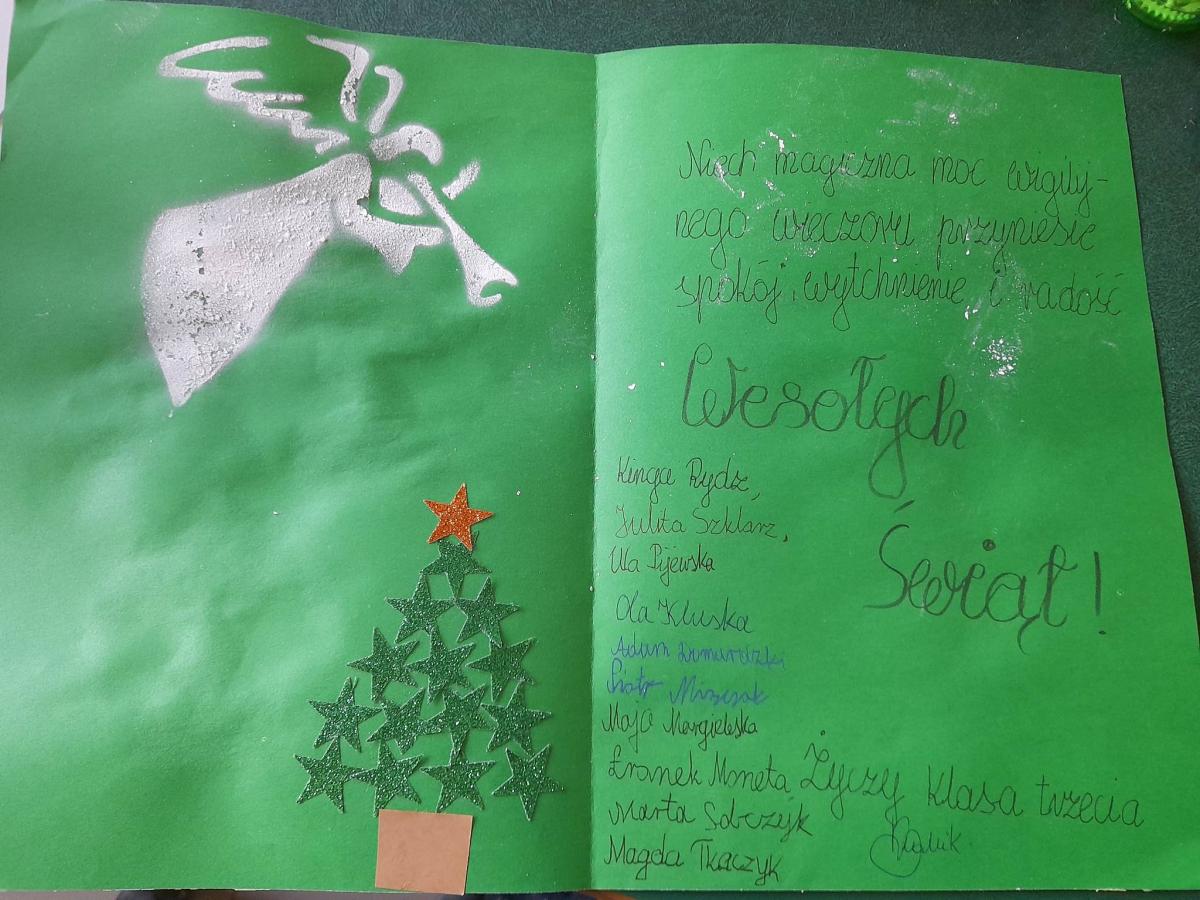 Niech magiczna moc wigilij-
nego wieczoru przyniesie
spokój, wytchnienie i radość
Wesołych
Świąt!
Kinga Rydz,
Julita Szklarz,
Ula Pijewska
Ola Kluska
Adam
Piotr
Maja Margielska
Franek Moneta
Marta Sobczyk
Magda Tkaczyk
Życzy klasa trzecia